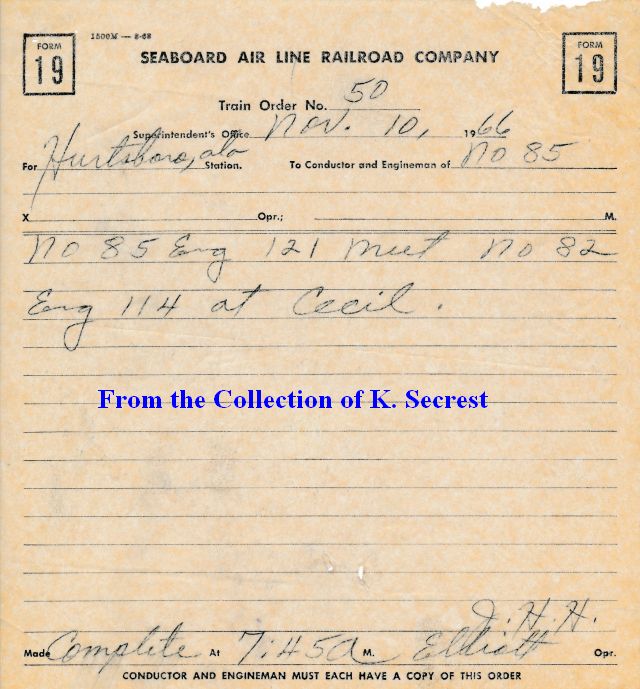 FORM 19
1500M — 8-63
FORM 19
SEABOARD AIR LINE RAILROAD COMPANY
Train Order No. 50
Superintendent's Office Nov. 10, 1966
For Hurtsboro, ala Station. To Conductor and Engineman of No 85
X Opr.; M.
No 85 Eng 121 meet No 82
Eng 114 at Cecil.
From the Collection of K. Secrest
J. H. H.
Made Complete At 7:45A M. Elliott Opr.
CONDUCTOR AND ENGINEMAN MUST EACH HAVE A COPY OF THIS ORDER